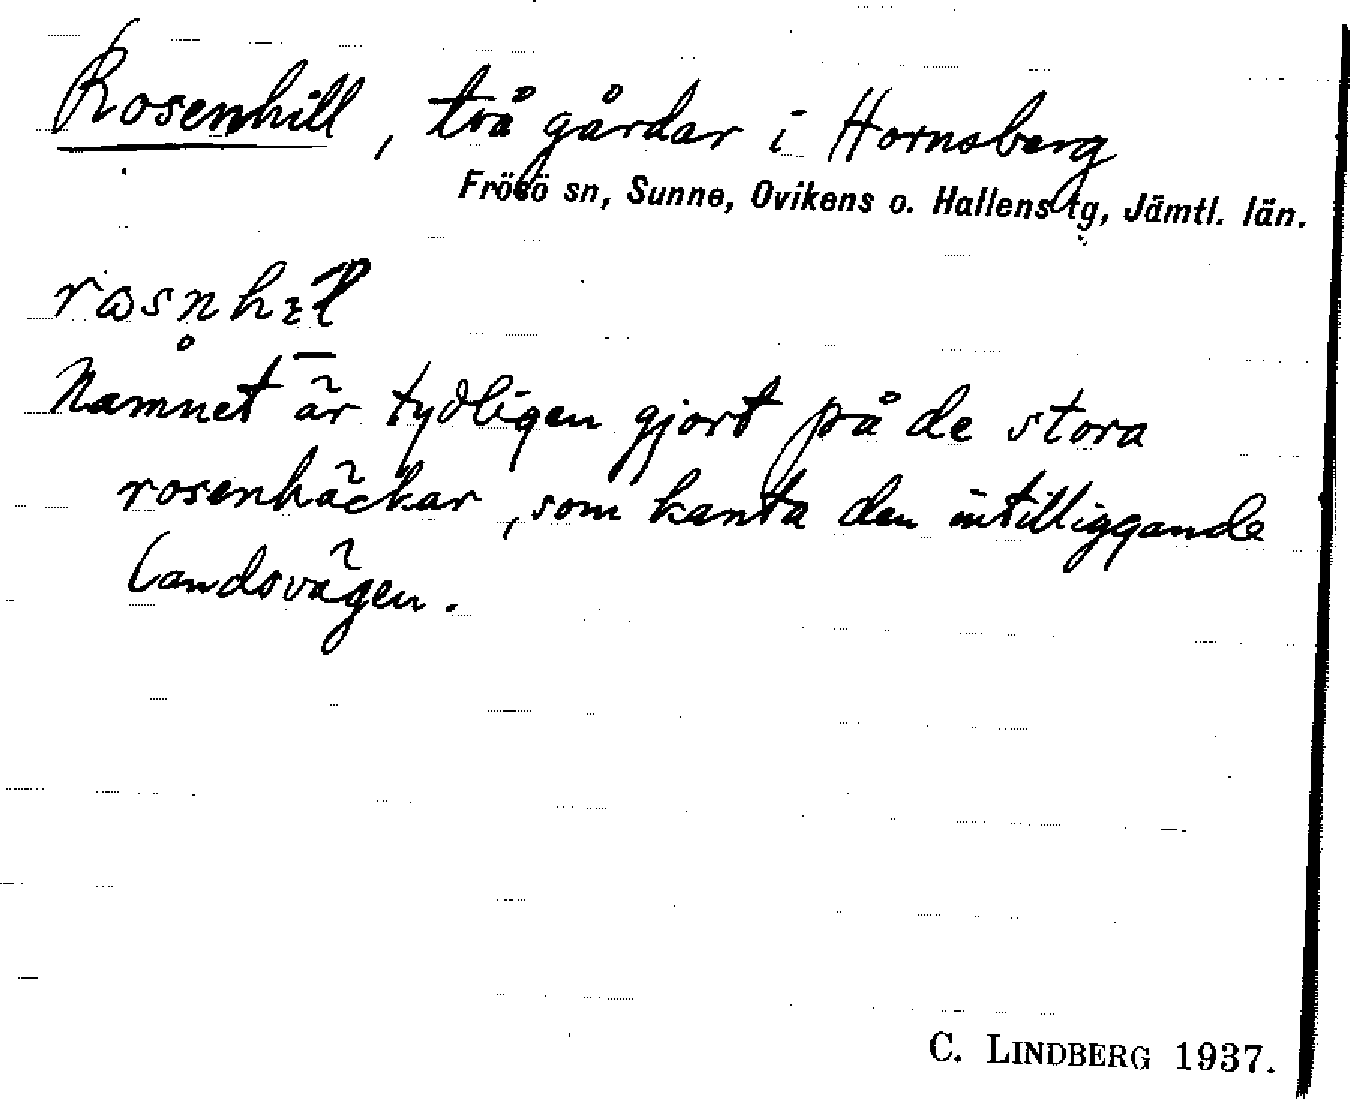 Rosenhill, två gårdar i Hornsberg
Frösö sn, Sunne, Ovikens o. Hallens tg, Jämtl. län.
Namnet är tydligen gjort på de stora
rosenhäckar, som kanta den intilliggande
landsvägen.
C. LINDBERG 1937.